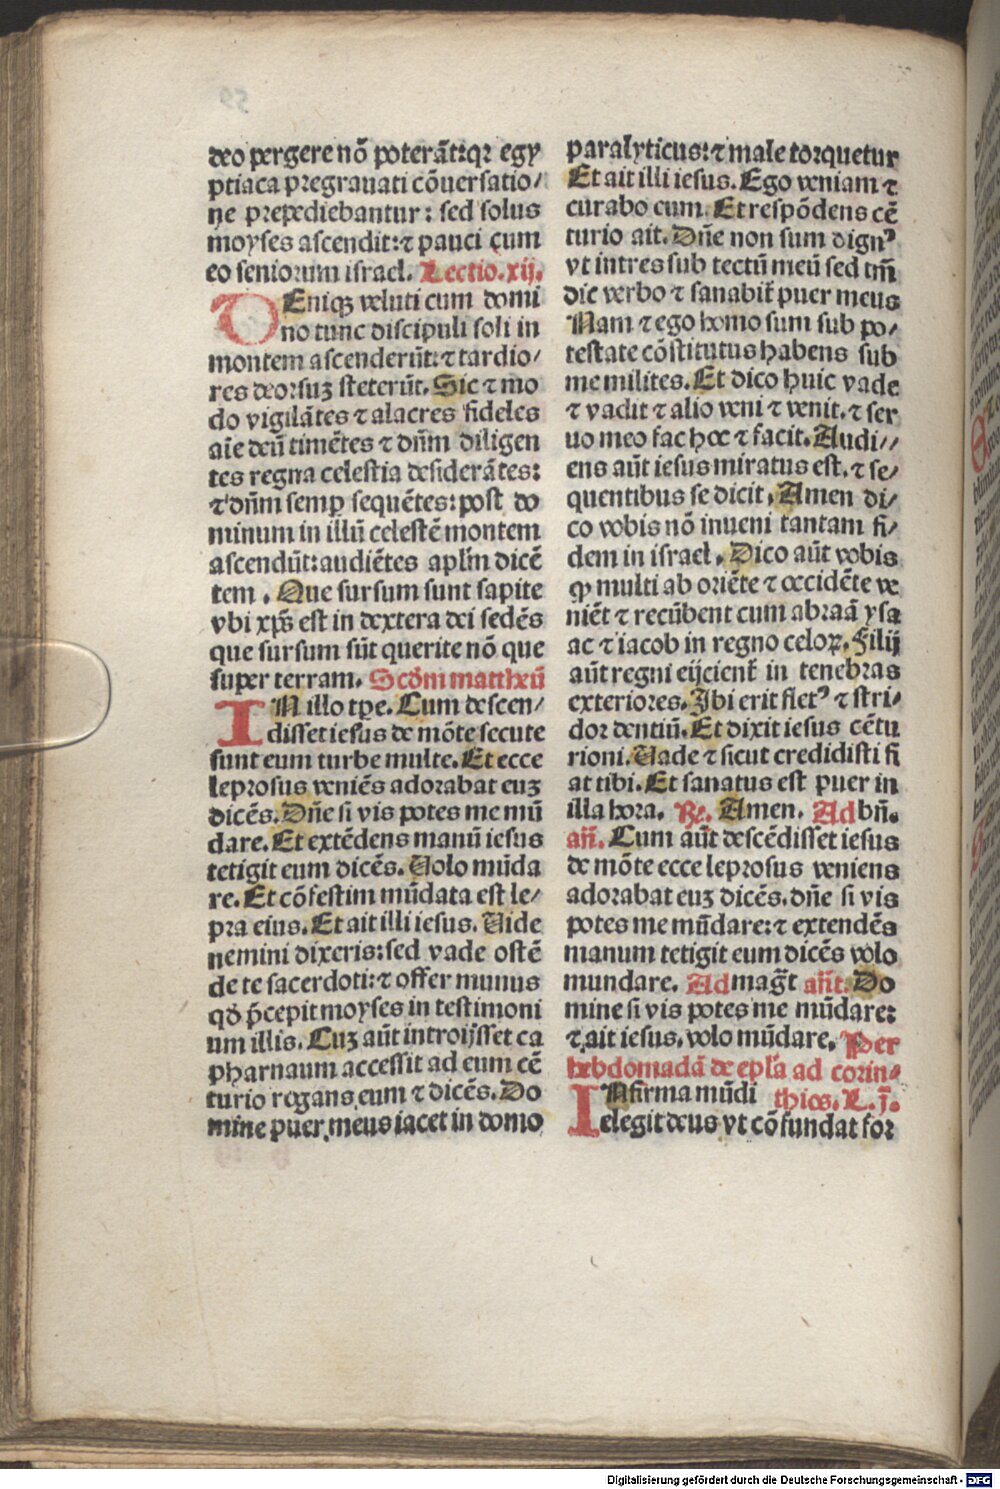 deo pergere nõ poterãt: qꝛ egy
ptiaca pregrauati cõuersatio/
ne prepediebantur: sed solus
moyses ascendit: ⁊ pauci cum
eo seniorum israel. Lectio. xij.
DEniqꝫ veluti cum domi
no tunc discipuli soli in
montem ascenderũt: ⁊ tardio/
res deorsuꝫ steterũt. Sic ⁊ mo
do vigilãtes ⁊ alacres fideles
aĩe deũ timẽtes ⁊ dñm diligen
tes regna celestia desiderãtes:
⁊ dñm semꝑ sequẽtes: post do
minum in illũ celestẽ montem
ascendũt: audiẽtes aplm̃ dicẽ
tem. Que sursum sunt sapite
vbi xp̃s est in dextera dei sedẽs
que sursum sũt querite nõ que
super terram. Scðm mattheũ
IN illo tꝑe. Cum descen/
disset iesus de mõte secute
sunt eum turbe multe. Et ecce
leprosus veniẽs adorabat euꝫ
dicẽs. Dñe si vis potes me mũ
dare. Et extẽdens manũ iesus
tetigit eum dicẽs. Uolo mũda
re. Et cõfestim mũdata est le/
pra eius. Et ait illi iesus. Uide
nemini dixeris: sed vade ostẽ
de te sacerdoti: ⁊ offer munus
qð p̃cepit moyses in testimoni
um illis. Cuꝫ aũt introijsset ca
pharnaum accessit ad eum cẽ
turio rogans eum ⁊ dicẽs. Do
mine puer meus iacet in domo
paralyticus: ⁊ male torquetur
Et ait illi iesus. Ego veniam ⁊
curabo eum. Et respõdens cẽ
turio ait. Dñe non sum dignꝰ
vt intres sub tectũ meũ sed tm̃
dic verbo ⁊ sanabit̃ puer meus
Nam ⁊ ego homo sum sub po/
testate cõstitutus habens sub
me milites. Et dico huic vade
⁊ vadit ⁊ alio veni ⁊ venit. ⁊ ser
uo meo fac hoc ⁊ facit. Audi//
ens aũt iesus miratus est. ⁊ se/
quentibus se dicit. Amen di/
co vobis nõ inueni tantam fi/
dem in israel. Dico aũt vobis
ꝙ multi ab oriẽte ⁊ occidẽte ve
niẽt ⁊ recũbent cum abraã ysa
ac ⁊ iacob in regno celoꝝ. Filij
aũt regni eijcient̃ in tenebras
exteriores. Ibi erit fletꝰ ⁊ stri/
dor dentiũ. Et dixit iesus cẽtu
rioni. Uade ⁊ sicut credidisti fi
at tibi. Et sanatus est puer in
illa hora. ℞. Amen. Ad bñ.
añ. Cum aũt descẽdisset iesus
de mõte ecce leprosus veniens
adorabat euꝫ dicẽs. dñe si vis
potes me mũdare: ⁊ extendẽs
manum tetigit eum dicẽs volo
mundare. Ad mag̃t añt. Do
mine si vis potes me mũdare:
⁊ ait iesus. volo mũdare. Per
hebdomadã de epl̃a ad corin/
INfirma mũdi thios. L. j̃.
elegit deus vt cõfundat for
Digitalisierung gefördert durch die Deutsche Forschungsgemeinschaft - DFG